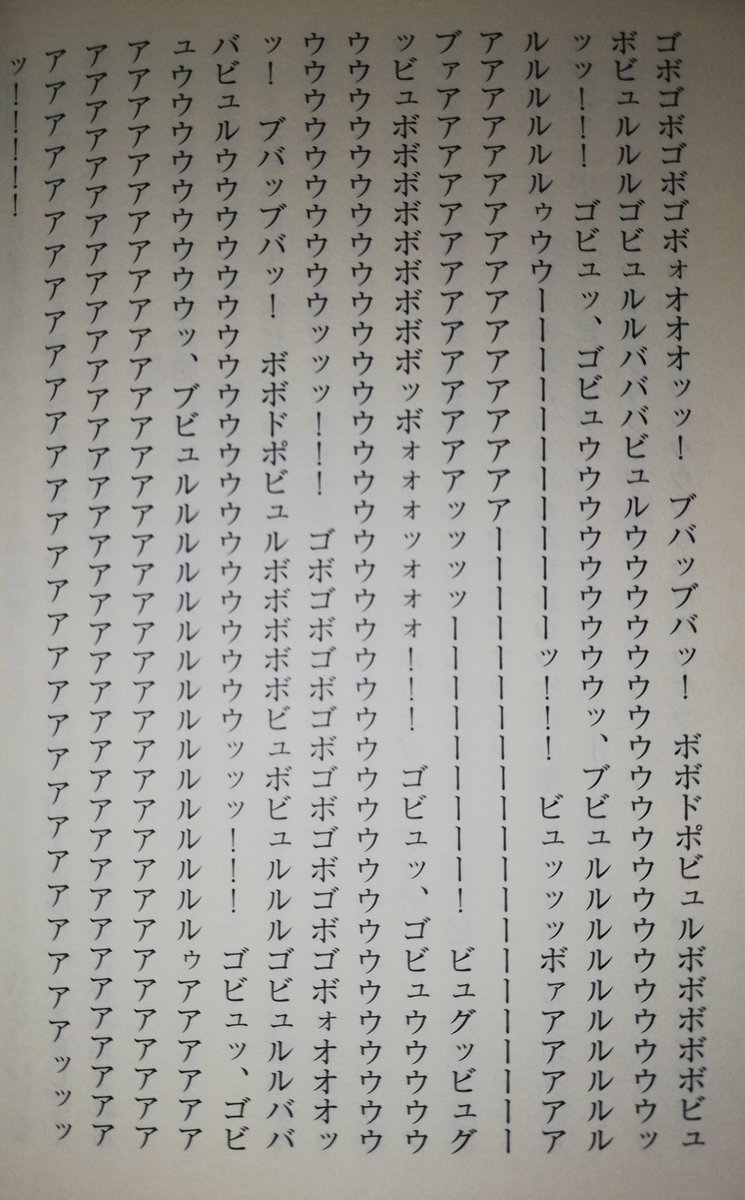 ゴボゴボゴボゴボォオオオッッ！　ブバッブバッ！　ボボドポビュルボボボボボビュ
ボビュルルルゴビュルルバババビュルウウウウウウウウウウウウウウウウウウウウウッ
ッッ！！！　ゴビュッ、ゴビュウウウウウウウウウッ、ブビュルルルルルルルルルルル
ルルルルルルゥウウーーーーーーーーーーーーーッ！！！　ビュッッッボァアアアアア
アアアアアアアアアアアアアアアアアーーーーーーーーーーーーーーーーーーーーーー
ブァアアアアアアアアアアアアアアアッッッッーーーーーーーーーー！　ビュグッビュグ
ッビュボボボボボボボボボボッボォォォッォォォ！！！　ゴビュッ、ゴビュウウウウウ
ウウウウウウウウウウウウウウウウウウウウウウウウウウウウウウウウウウウウウウウ
ウウウウウウウウウウウッッッ！！！　ゴボゴボゴボゴボゴボゴボゴボゴボォオオオッ
ッ！　ブバッブバッ！　ボボドポビュルボボボボボビュボビュルルルゴビュルルババ
バビュルウウウウウウウウウウウウウウウウウウウウウッッッ！！！　ゴビュッ、ゴビ
ュウウウウウウウウウッ、ブビュルルルルルルルルルルルルルルルルルゥアアアアアア
アアアアアアアアアアアアアアアアアアアアアアアアアアアアアアアアアアアアアアア
アアアアアアアアアアアアアアアアアアアアアアアアアアアアアアアアアアアアアアア
アアアアアアアアアアアアアアアアアアアアアアアアアアアアアアアアアアアッッッ
ッ！！！！！